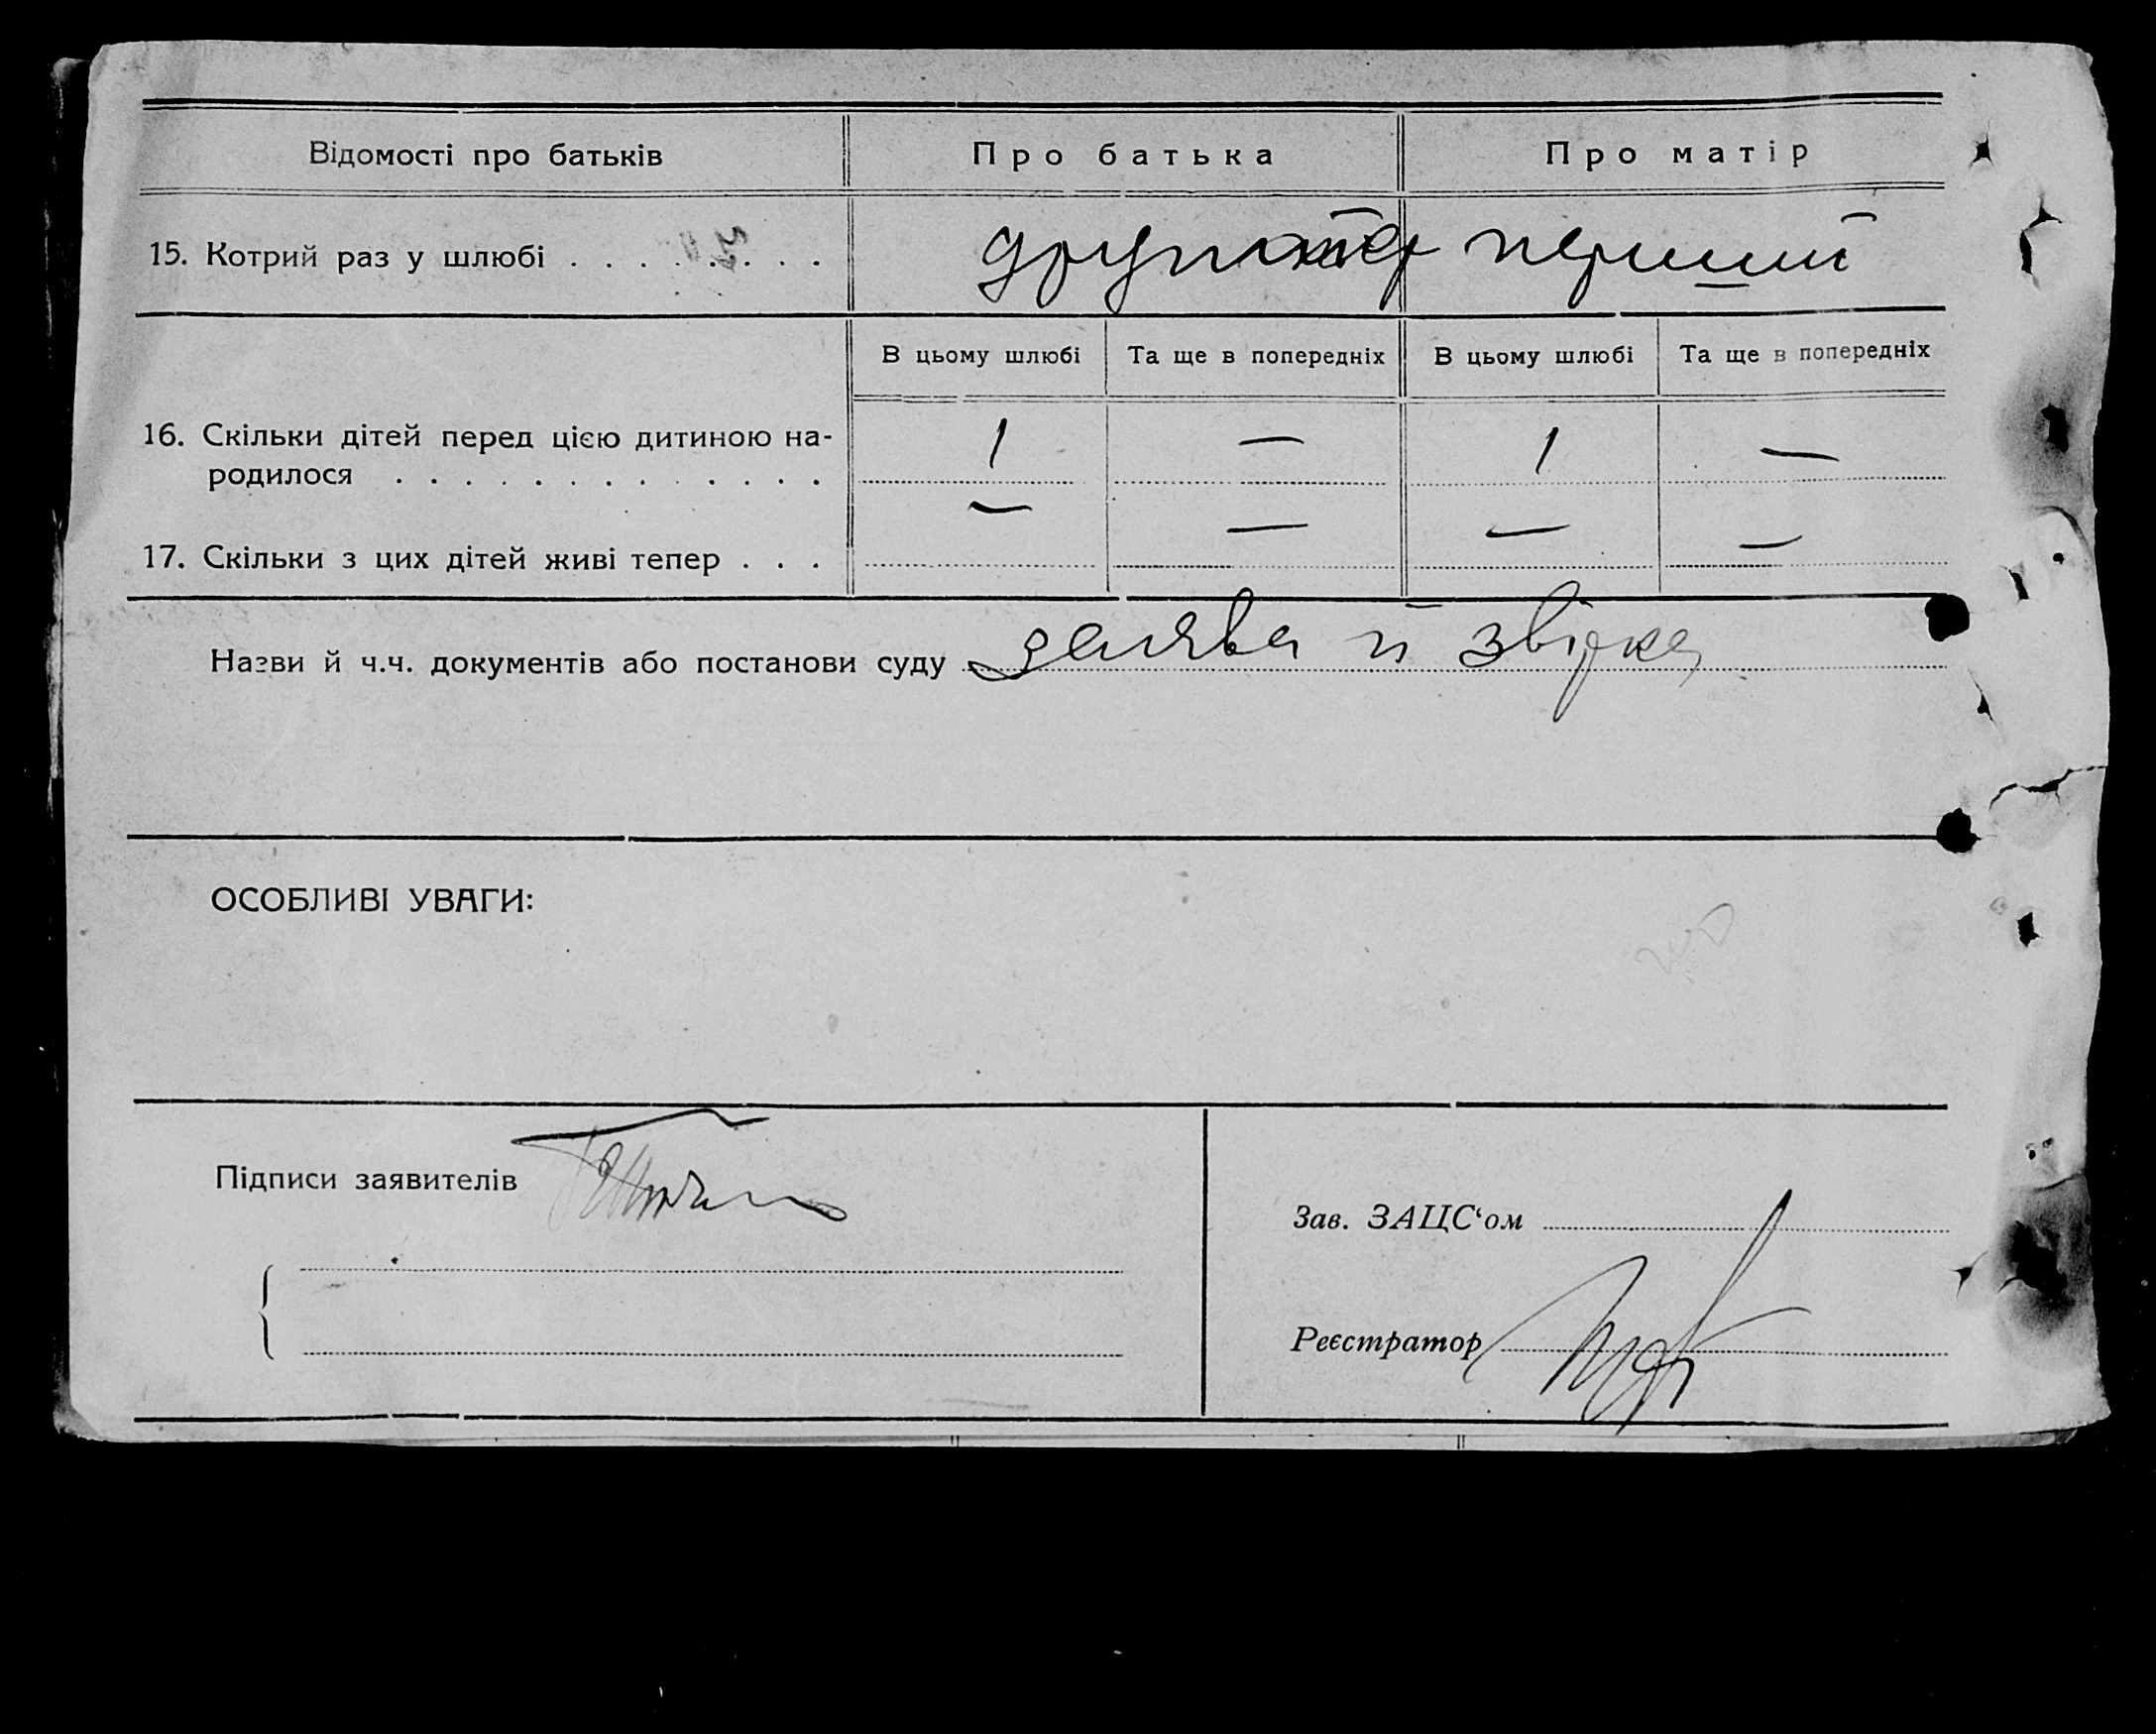 Відомості про батьків Про батька Про матір
15. Котрий раз у шлюбі . . . . . . . . перший
В цьому шлюбі Та ще в попередніх В цьому шлюбі Та ще в попередніх
16. Скільки дітей перед цією дитиною на- 1 — 1 —
родилося . . . . . . . . . . . . .
— — — —
17. Скільки з цих дітей живі тепер . . .
Назви й ч.ч. документів або постанови суду заява й звірка
ОСОБЛИВІ УВАГИ:
Підписи заявителів
Зав. ЗАЦС‘ом
Реєстратор